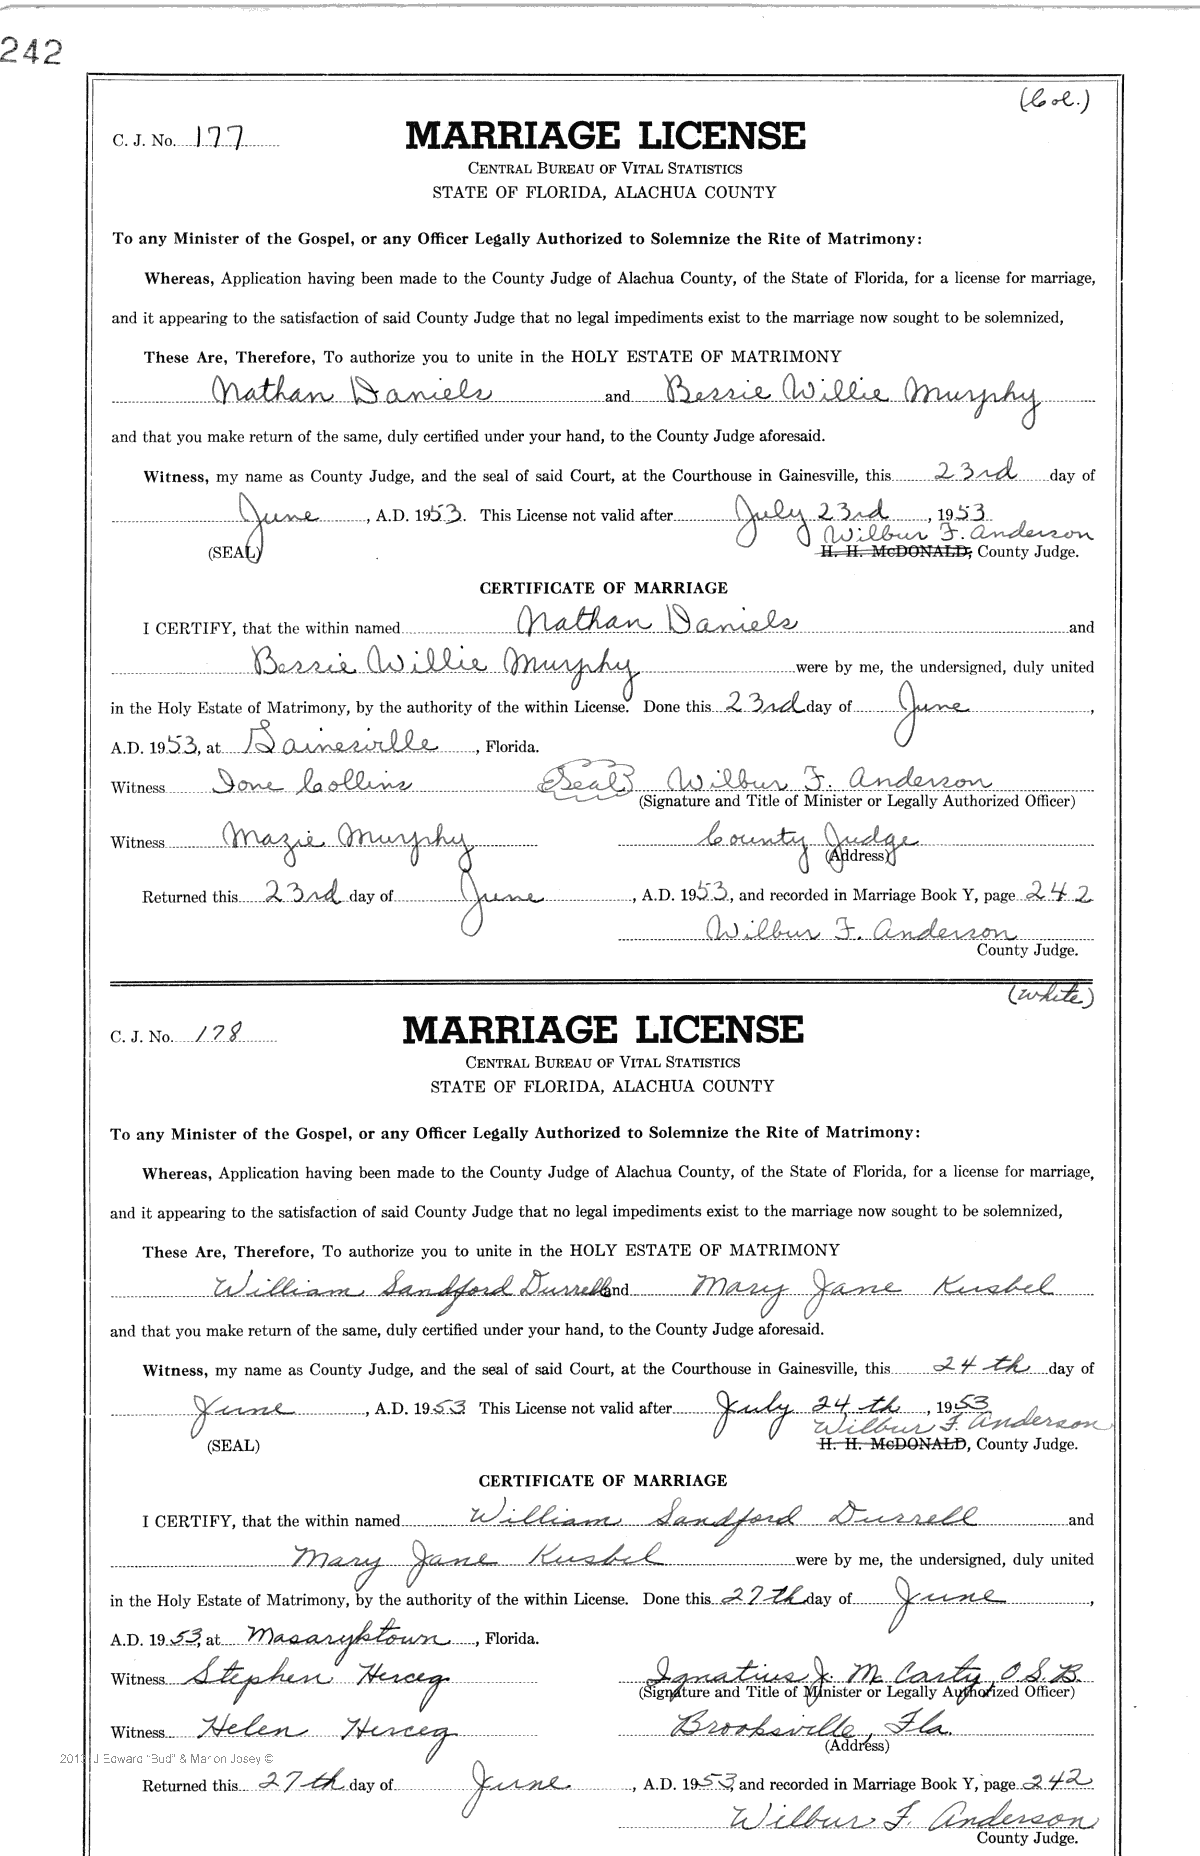 242
(Col.)
C. J. No. 177
MARRIAGE LICENSE
CENTRAL BUREAU OF VITAL STATISTICS
STATE OF FLORIDA, ALACHUA COUNTY
To any Minister of the Gospel, or any Officer Legally Authorized to Solemnize the Rite of Matrimony:
Whereas, Application having been made to the County Judge of Alachua County, of the State of Florida, for a license for marriage,
and it appearing to the satisfaction of said County Judge that no legal impediments exist to the marriage now sought to be solemnized,
These Are, Therefore, To authorize you to unite in the HOLY ESTATE OF MATRIMONY
Nathan Daniels and Bessie Willie Murphy
and that you make return of the same, duly certified under your hand, to the County Judge aforesaid.
Witness, my name as County Judge, and the seal of said Court, at the Courthouse in Gainesville, this 23rd day of
June, A.D. 1953. This License not valid after July 23rd, 1953
Wilbur F. Anderson
(SEAL) H. H. McDONALD, County Judge.
CERTIFICATE OF MARRIAGE
I CERTIFY, that the within named Nathan Daniels and
Bessie Willie Murphy were by me, the undersigned, duly united
in the Holy Estate of Matrimony, by the authority of the within License. Done this 23rd day of June,
A.D. 1953, at Gainesville, Florida.
Witness Ione Collins (Seal) Wilbur F. Anderson
(Signature and Title of Minister or Legally Authorized Officer)
Witness Mazie Murphy County Judge
(Address)
Returned this 23rd day of June, A.D. 1953, and recorded in Marriage Book Y, page 242
Wilbur F. Anderson
County Judge.
(White)
C. J. No. 178
MARRIAGE LICENSE
CENTRAL BUREAU OF VITAL STATISTICS
STATE OF FLORIDA, ALACHUA COUNTY
To any Minister of the Gospel, or any Officer Legally Authorized to Solemnize the Rite of Matrimony:
Whereas, Application having been made to the County Judge of Alachua County, of the State of Florida, for a license for marriage,
and it appearing to the satisfaction of said County Judge that no legal impediments exist to the marriage now sought to be solemnized,
These Are, Therefore, To authorize you to unite in the HOLY ESTATE OF MATRIMONY
William Sandford Durrell and Mary Jane Kusbel
and that you make return of the same, duly certified under your hand, to the County Judge aforesaid.
Witness, my name as County Judge, and the seal of said Court, at the Courthouse in Gainesville, this 24th day of
June, A.D. 1953 This License not valid after July 24th, 1953
Wilbur F. Anderson
(SEAL) H. H. McDONALD, County Judge.
CERTIFICATE OF MARRIAGE
I CERTIFY, that the within named William Sandford Durrell and
Mary Jane Kusbel were by me, the undersigned, duly united
in the Holy Estate of Matrimony, by the authority of the within License. Done this 27th day of June,
A.D. 1953, at Masaryktown, Florida.
Witness Stephen Herceg Ignatius J. McCarty, O.S.B.
(Signature and Title of Minister or Legally Authorized Officer)
Witness Helen Herceg Brooksville, Fla.
(Address)
2013 J Edward "Bud" & Marion Josey ©
Returned this 27th day of June, A.D. 1953, and recorded in Marriage Book Y, page 242
Wilbur F. Anderson
County Judge.